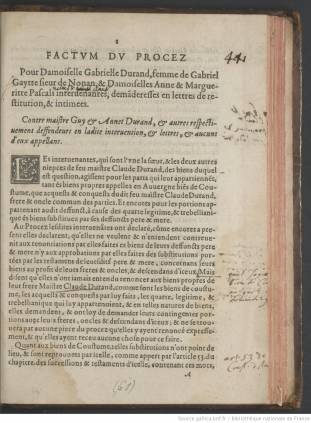 FACTVM DV PROCEZ
44.
Pour Damoiselle Gabrielle Durand, femme de Gabriel
Guytte sieur de Nonan, & Damoiselles Anne & Margue-
ritte Pascals interuenantes, demãderesses en lettres de re-
stitution, & intimees.
Contre maistre Guy & Annet Durand, & autres respecti-
uement deffendeurs en ladite interuention, & lettres, & aucuns
d'eux appellans.
LEs interuenantes, qui sont l'vne la sœur, & les deux autres
niepces de feu maistre Claude Durand, des biens duquel
est question, agissent pour les parts qui leur appartiennent,
tant és biens propres appellés en Auuergne biés de Cou-
stume, que acquests & conquests dudit feu maistre Claude Durand,
frere & oncle commun des parties. Et encores pour les portions ap-
partenant audit deffunct, à cause des quarte legitime, & trebelliani-
que és biens substituez par ses deffuncts pere & mere.
Au Procez lesdites interuenantes ont declaré, cõme encores à pre-
sent elles declarent, qu'elles ne veulent & n'entendent contreue-
nir aux renonciations par elles faites és biens de leurs deffuncts pere
& mere ny aux approbations par elles faites des substitutions por-
tées par les testaments desdits pere & mere, concernans leurs
biens au profit de leurs freres & oncles, & descendans d'iceux. Mais
disent qu'elles n'ont iamais entendu renoncer aux biens propres de
leur frere Maistre Claude Durand, comme sont les biens de coustu-
me, les acquests & conquests par luy faits, les quarte, legitime, &
trebellianique qui luy appartenoient, & en telles natures de biens,
elles demandent, & ont lieu de demander leurs contingentes por-
tions auec leurs freres, oncles & descendans d'iceux; & ne se trou-
uera par aucune piece du procez qu'elles y ayent renoncé expresse-
ment, & qu'elles ayent receu aucune chose pour ce faire.
Quant aux biens de Coustume, telles substitutions n'ont point de
lieu, & sont reprouuées par icelle, comme appert par l'article 53. du
chapitre des successions & testaments d'icelle, contenant ces mots,
A
(61)
Source gallica.bnf.fr / Bibliothèque nationale de France